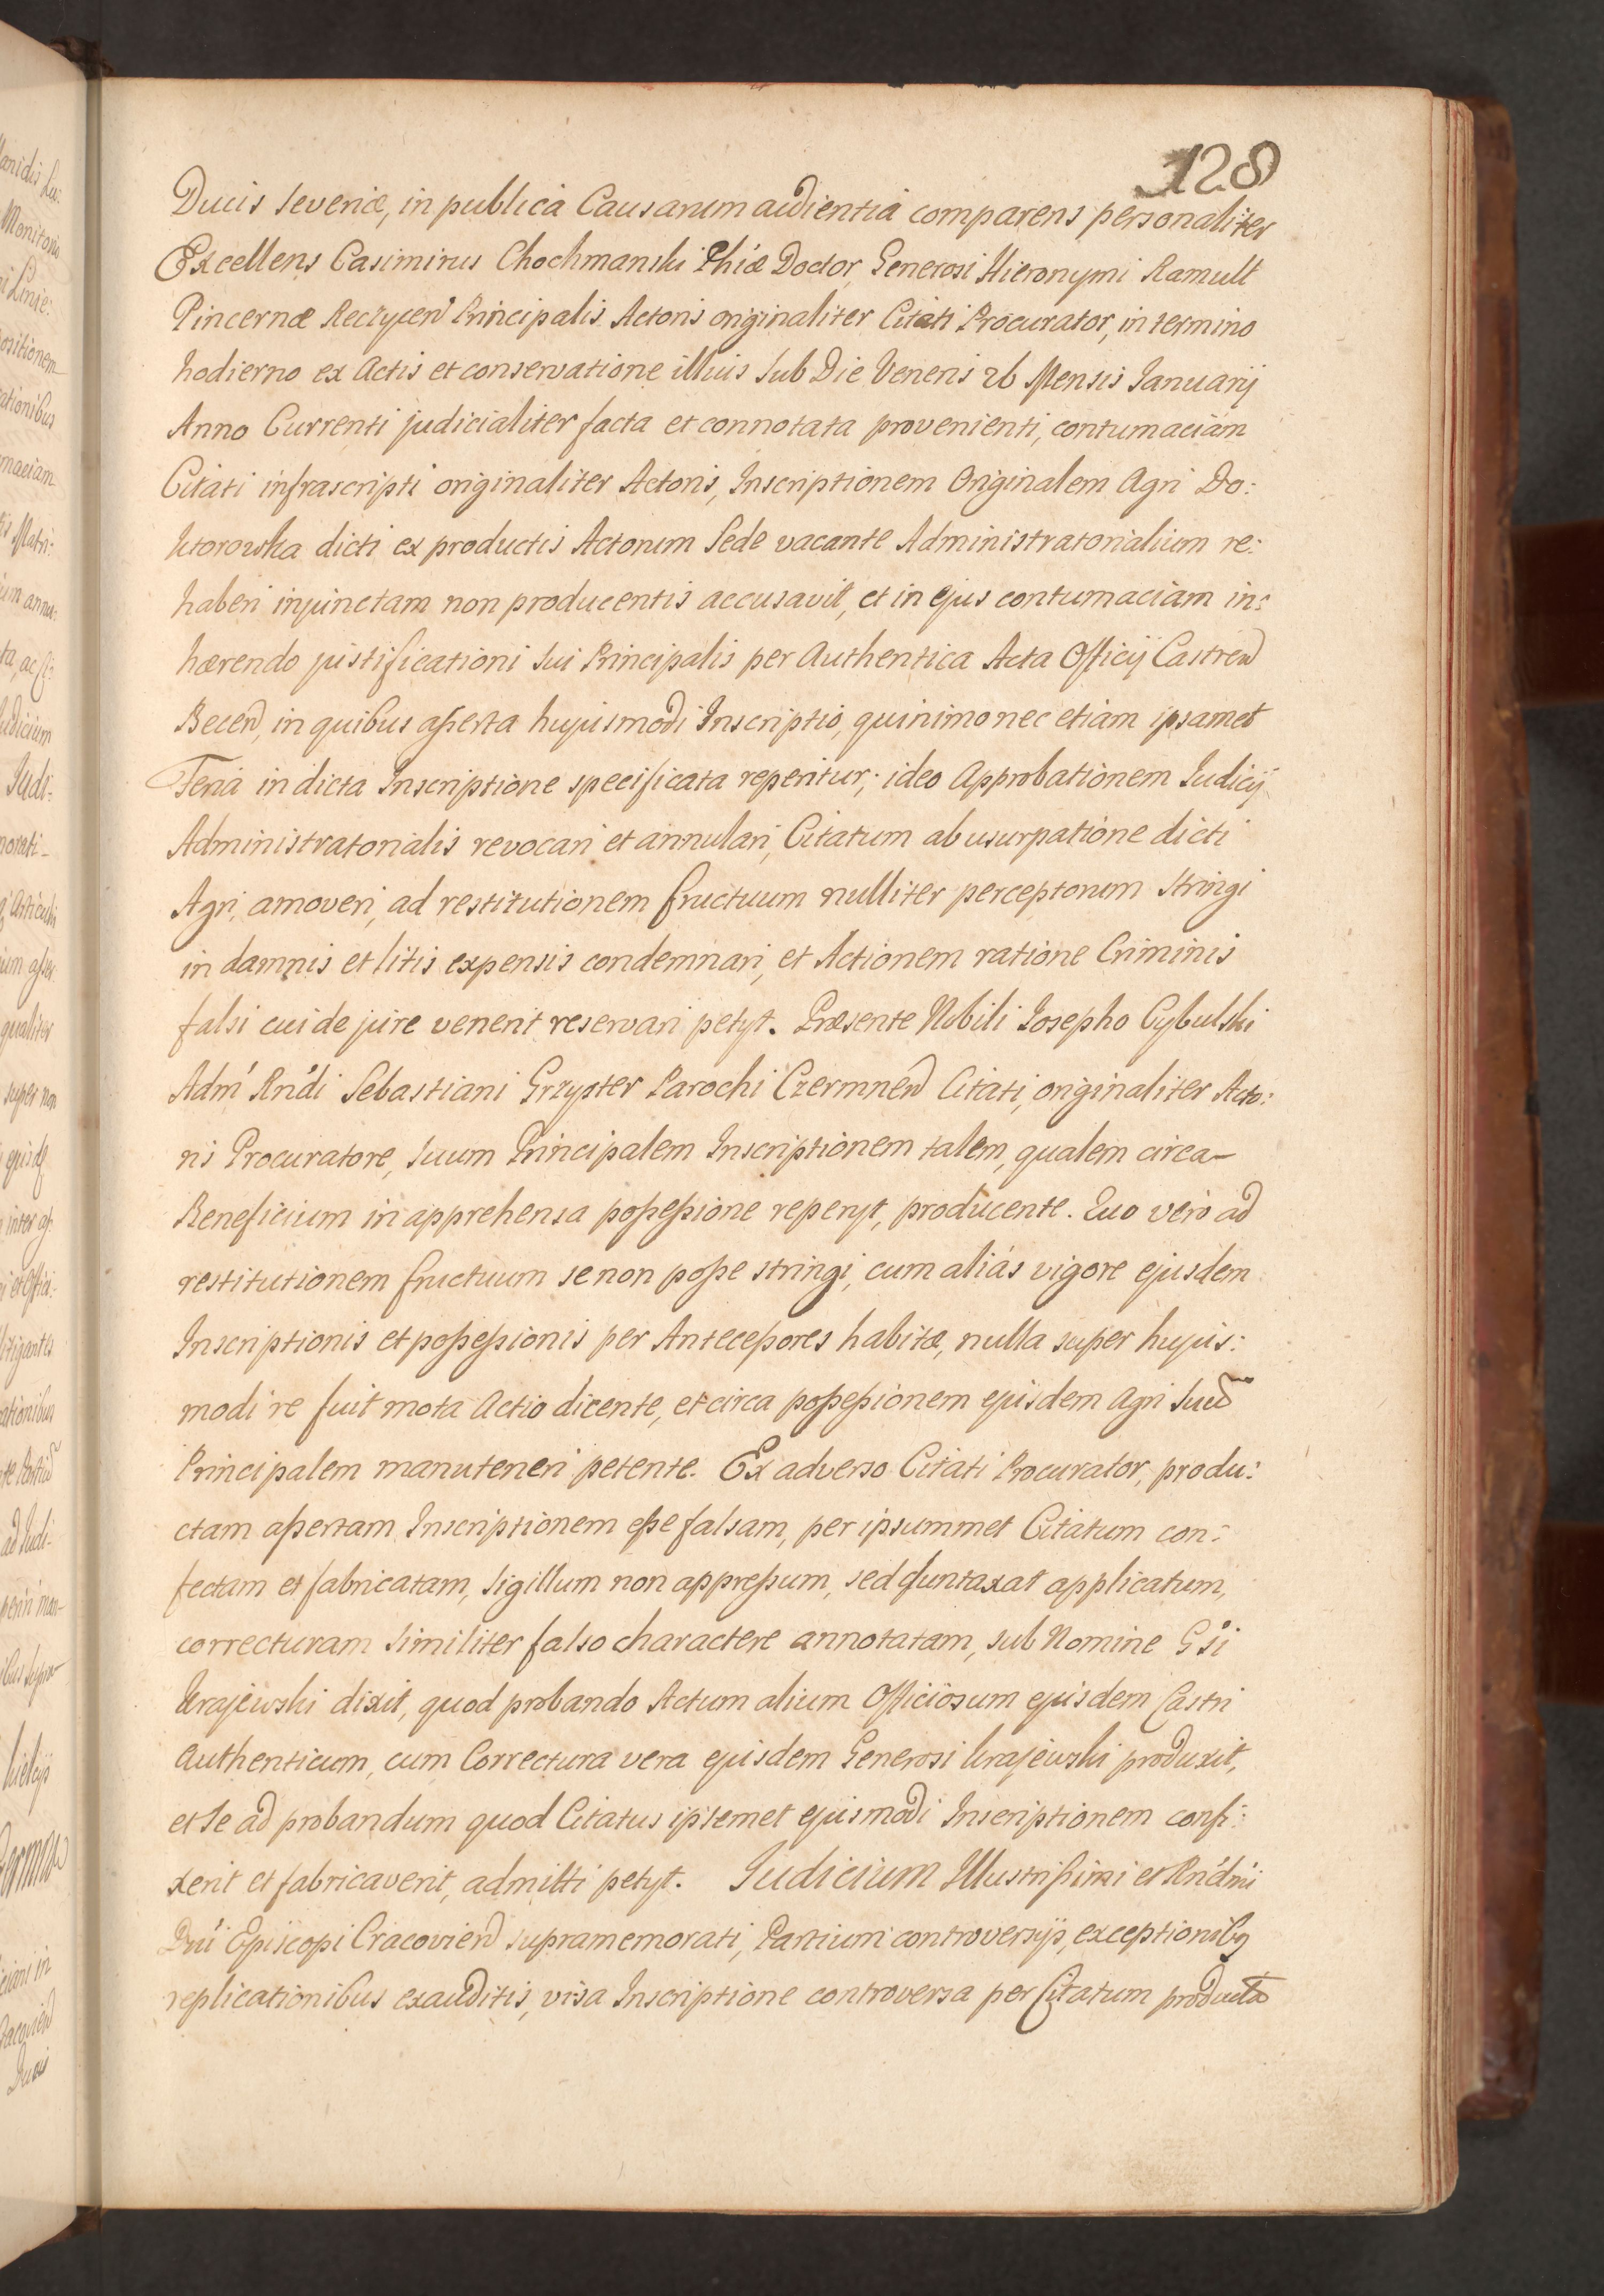 128
Ducis Severiæ, in publica Causarum audientia comparens personaliter
Excellens Casimirus Chochmanski Phiæ Doctor, Generosi Hieronymi Ramult
Pincernæ Rectycen Principalis Actoris originaliter Citati Procurator, in termino
hodierno ex Actis et conservatione illius Sub Die Veneris 26 Mensis Ianuarij
Anno Currenti judicialiter facta et connotata provenienti, contumaciam
Citati infrascripti originaliter Actoris, Inscriptionem Originalem Agri Do:
ktorowska dicti ex productis Actorum Sede vacante Administratorialium re:
haberi injunctam non producentis accusavit, et in ejus contumaciam in:
hærendo justificationi sui Principalis per Authentica Acta Officij Castren
Becen, in quibus asserta hujusmodi Inscriptio, quinimo nec etiam ipsamet
Feria in dicta Inscriptione specificata reperitur; ideo Approbationem Iudicij
Administratorialis revocari et annulari, Citatum ab usurpatione dicti
Agri, amoveri, ad restitutionem fructuum nulliter perceptorum stringi
in damnis et litis expensis condemnari, et Actionem ratione Criminis
falsi cui de jure venerit reservari petyt. Præsente Nobili Iosepho Cybulski
Adm Rndi Sebastiani Grzypter Parochi Czermnen Citati, originaliter Acto:
ris Procuratore, Suum Principalem Inscriptionem talem, qualem circa
Beneficium in apprehensa possessione reperyt, producente. Quo vero ad
restitutionem fructuum se non posse stringi, cum aliás vigore ejusdem
Inscriptionis et possessionis per Antecessores habitæ, nulla super hujus:
modi re fuit mota Actio dicente, et circa possessionem ejusdem Agri Suū
Principalem manuteneri petente. Ex adverso Citati Procurator, produ:
ctam assertam Inscriptionem esse falsam, per ipsummet Citatum con:
fectam et fabricatam, Sigillum non appressum, sed duntaxat applicatum,
correcturam similiter falso charactere annotatam, sub Nomine Gsi
Krajewski dixit, quod probando Actum alium Officiosum ejusdem Castri
Authenticum, cum Correctura vera ejusdem Generosi Krajewski produxit,
et Se ad probandum quod Citatus ipsemet ejusmodi Inscriptionem confi:
xerit et fabricaverit, admitti petyt. Iudicium Illustrissimi et Rndmi
Dni Episcopi Cracovien supramemorati, Partium controversijs, exceptionibq
replicationibus exauditis, visa Inscriptione controversa per Citatum producta